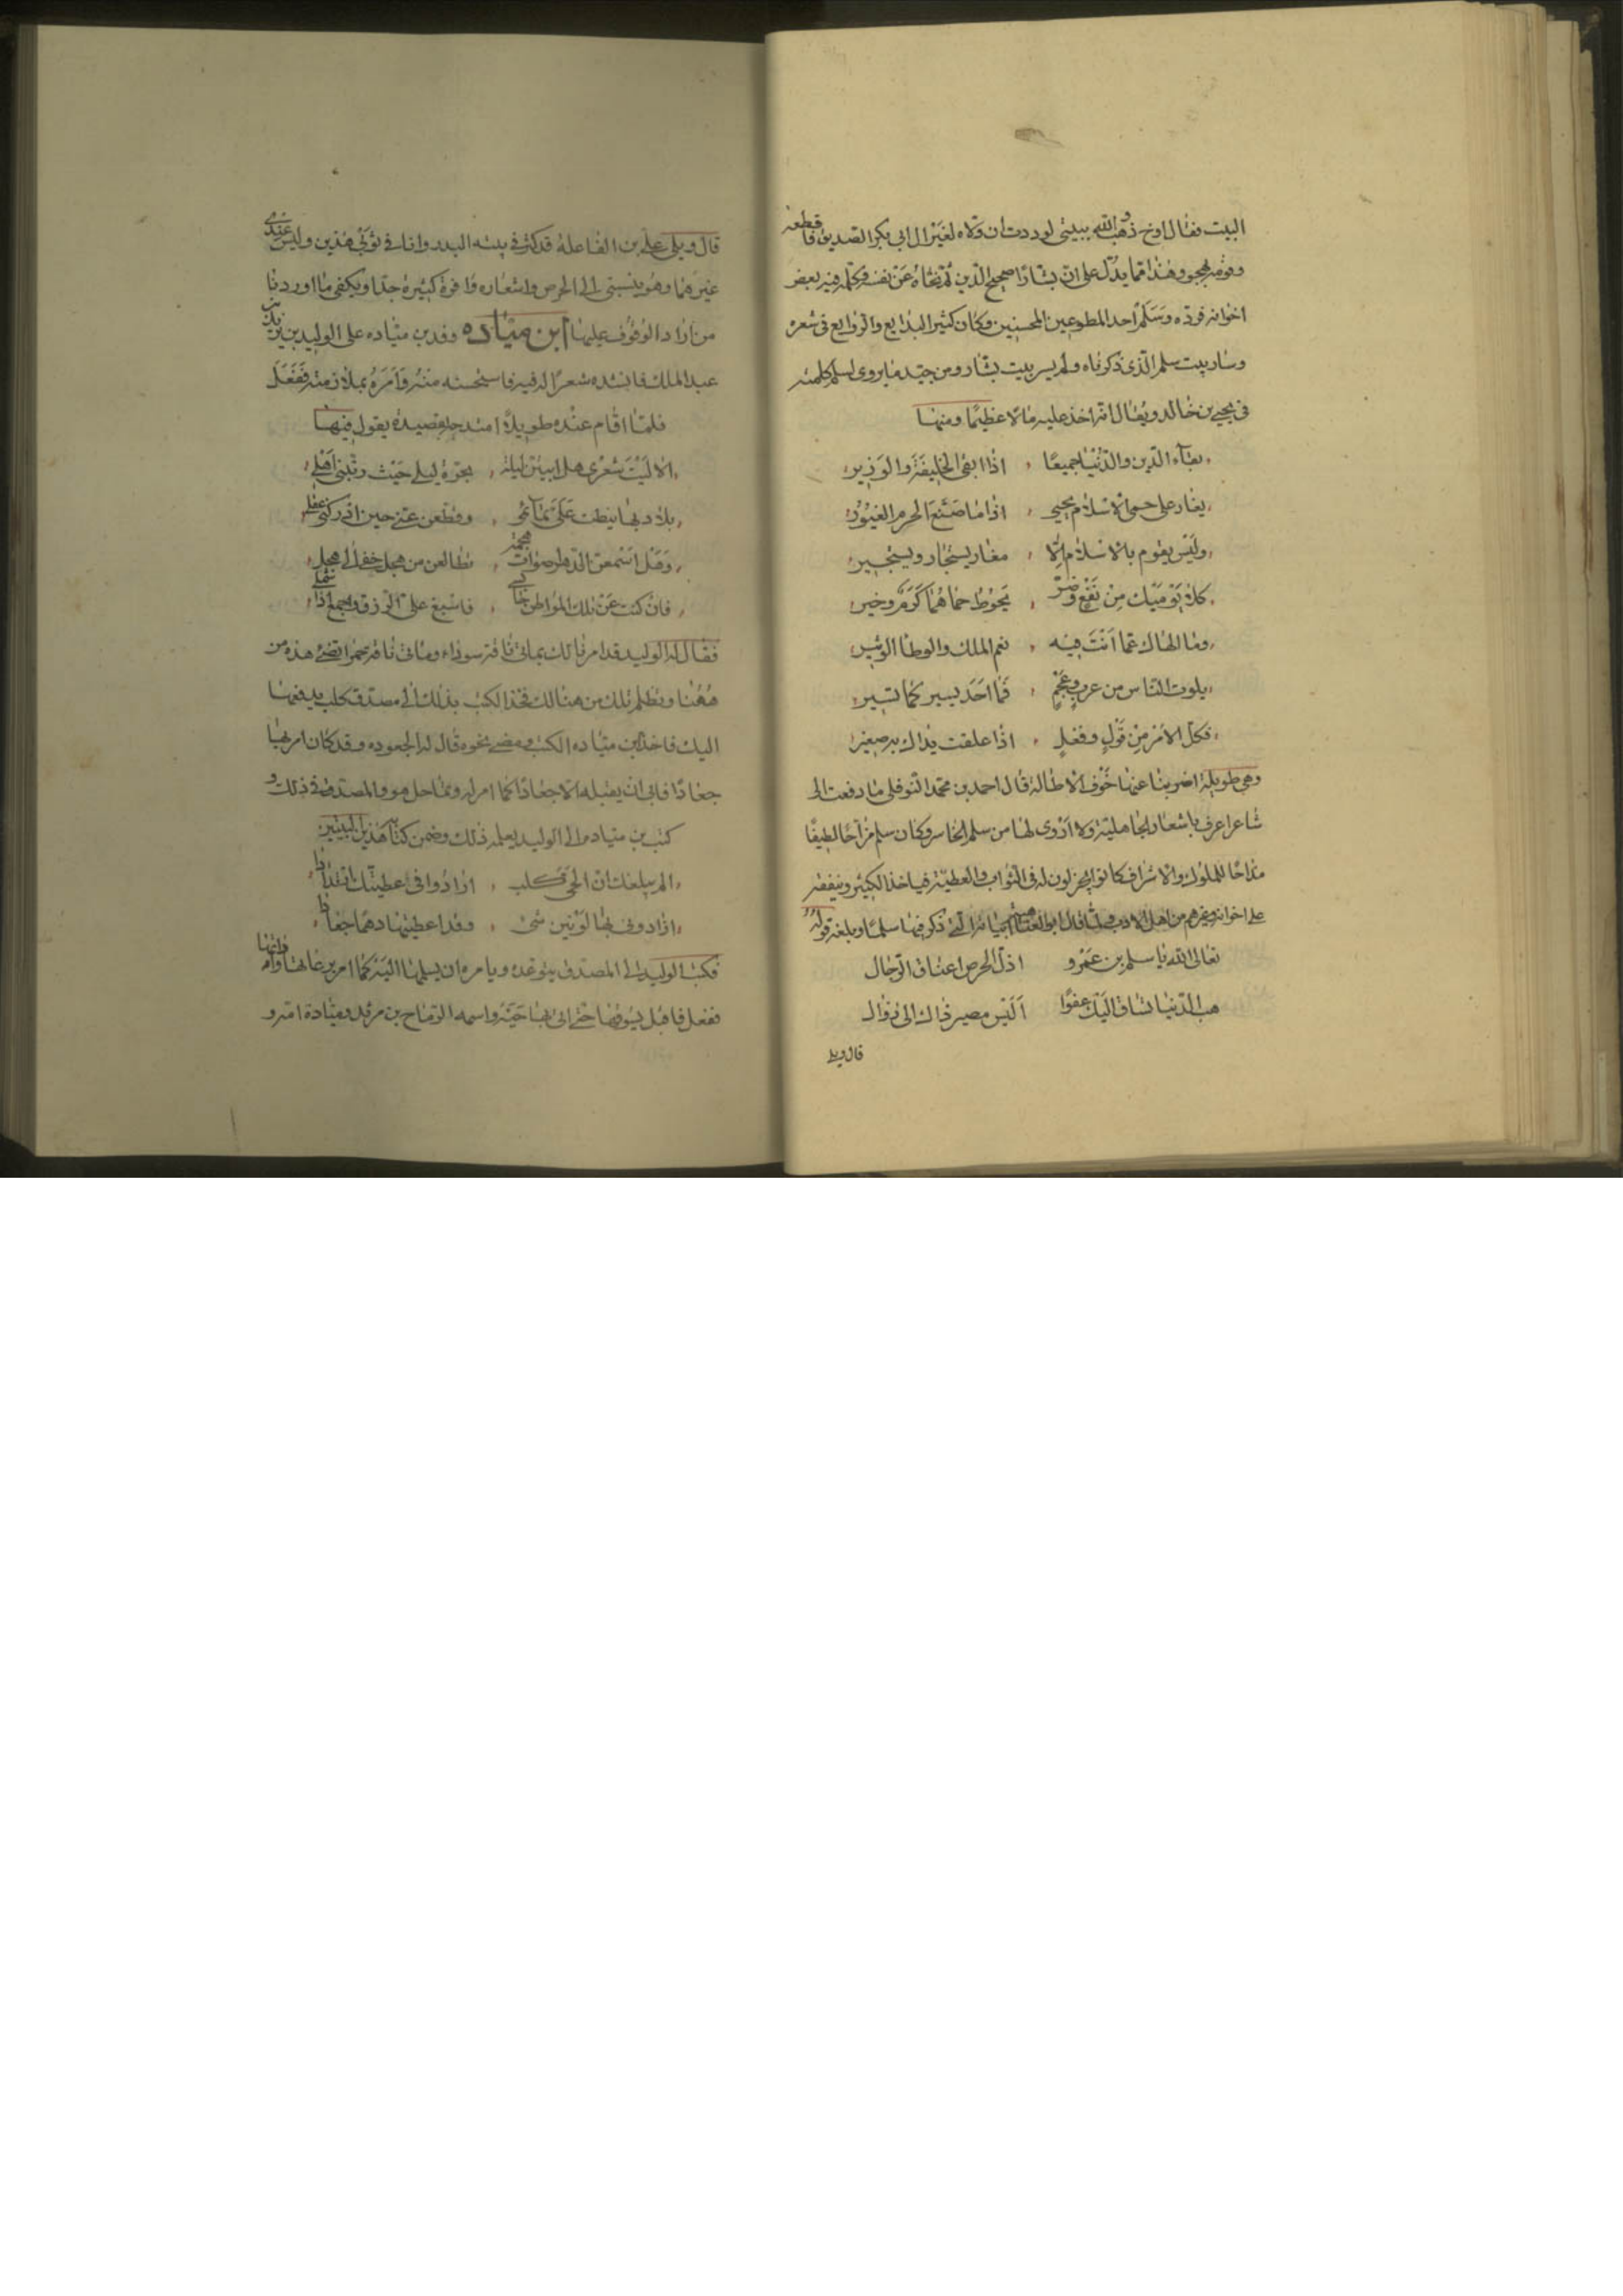 البيت فقال اوخ ذهب والله ببيتي لوددت ان ولاه لغير ال ابي بكر الصديق فاقطعه
وقومه فهجوه وهذا مما يدل على ان بشارا صحيح الذين عن نفسه فكلمه فيه بعض
اخوانه فرده وسلم احد المطبوعين المحسنين وكان كثير البدايع والروايع في شعره
وسار بيت سلم الذي ذكرناه ولم يسر بيت بشار ومن جيد ما يروى لسلم كلمته
في يحيى بن خالد ويقال انه اخذ عليه مالا عظيما ومنها
بقاء الدين والدنيا جميعا اذا بقي الخليفة والوزير
يغار على حمى الاسلام يحيى اذا ما ضيع الحرم الغيور
وليس يقوم بالاسلام الا مغار يستجار ويستجير
كلا يوميك من نفع وضر يحوط حماهما كرم وخير
وما الهاك عما انت فيه نعم الملك والوطا الوثير
بلوت الناس من عرب وعجم فما احد يسير كما تسير
فكل الامر من قول وفعل اذا علقت يداك به صغير
وهي طويلة اضربنا عنها خوف الاطالة قال احمد بن محمد النوفلي ما دفعت الى
شاعر اعرف باشعار الجاهلية ولا اروى لها من سلم الخاسر وكان سلم مزاحا لطيفا
مداحا للملوك والاشراف كانوا يجزلون له في الثواب والعطية فياخذ الكثير وينفقه
على اخوانه وغيرهم من اهل الادب قال ابو العتاهية ابياته التي ذكر فيها سلما وبلغه قوله
تعالى الله يا سلم بن عمرو اذل الحرص اعناق الرجال
هب الدنيا تساق اليك عفوا اليس مصير ذاك الى زوال
قال ويلي
قال ويلي على بن الفاعلة قد كنز في بيته البدر وانا في ثوبي هذين وليس عندي
غيرهما وهو ينسبني الى الحرص واشعاره وافرة كثيرة جدا ويكفي ما اوردنا
من اراد الوقوف عليها ابن مياده وفد بن مياده على الوليد بن يزيد بن
عبد الملك فانشده شعرا له فيه فاستحسنه منه وامره بملازمته ففعل
فلما اقام عنده طويلا امتدحه بقصيدة يقول فيها
الا ليت شعري هل ابيتن ليلة بحرة ليلى حيث ربتني اهلي
بلاد بها نيطت على تمائمي وقطعن عني حين ادركني عقلي
وهل اسمعن الدهر اصوات هجمة تطالعن من هجل خفي الى هجل
فان كنت عن تلك المواطن حابسي فاسبغ على الرزق واجمع اذا شملي
فقال له الوليد قد امرنا لك بمائتي ناقة سوداء ومائتي ناقة حمرا تضئ هذه من
ههنا وتظلم تلك من هنالك فخذ الكتب بذلك الى مصدق كلب يدفعها
اليك فاخذ ابن مياده الكتب ومضى نحوه قال له الجعوده وقد كان امر بها
جعادا فابى ان يقبلها الا جعادا كما امر له وتماحل هو والمصدق في ذلك و
كتب بن مياده الى الوليد يعلمه ذلك وضمن كتابه هذين البيتين
الم يبلغك ان الحي كلب ارادوا في اعطيتك ارتدادا
ارادوني بها لونين شتى وقد اعطيتها دهما جعادا
فكتب الوليد الى المصدق يتوعده ويامره ان يسلمها اليه كما امر برعاتها
ففعل فاقبل يسوقها حتى اتى بها حيه واسمه الرماح بن ومياده امه و